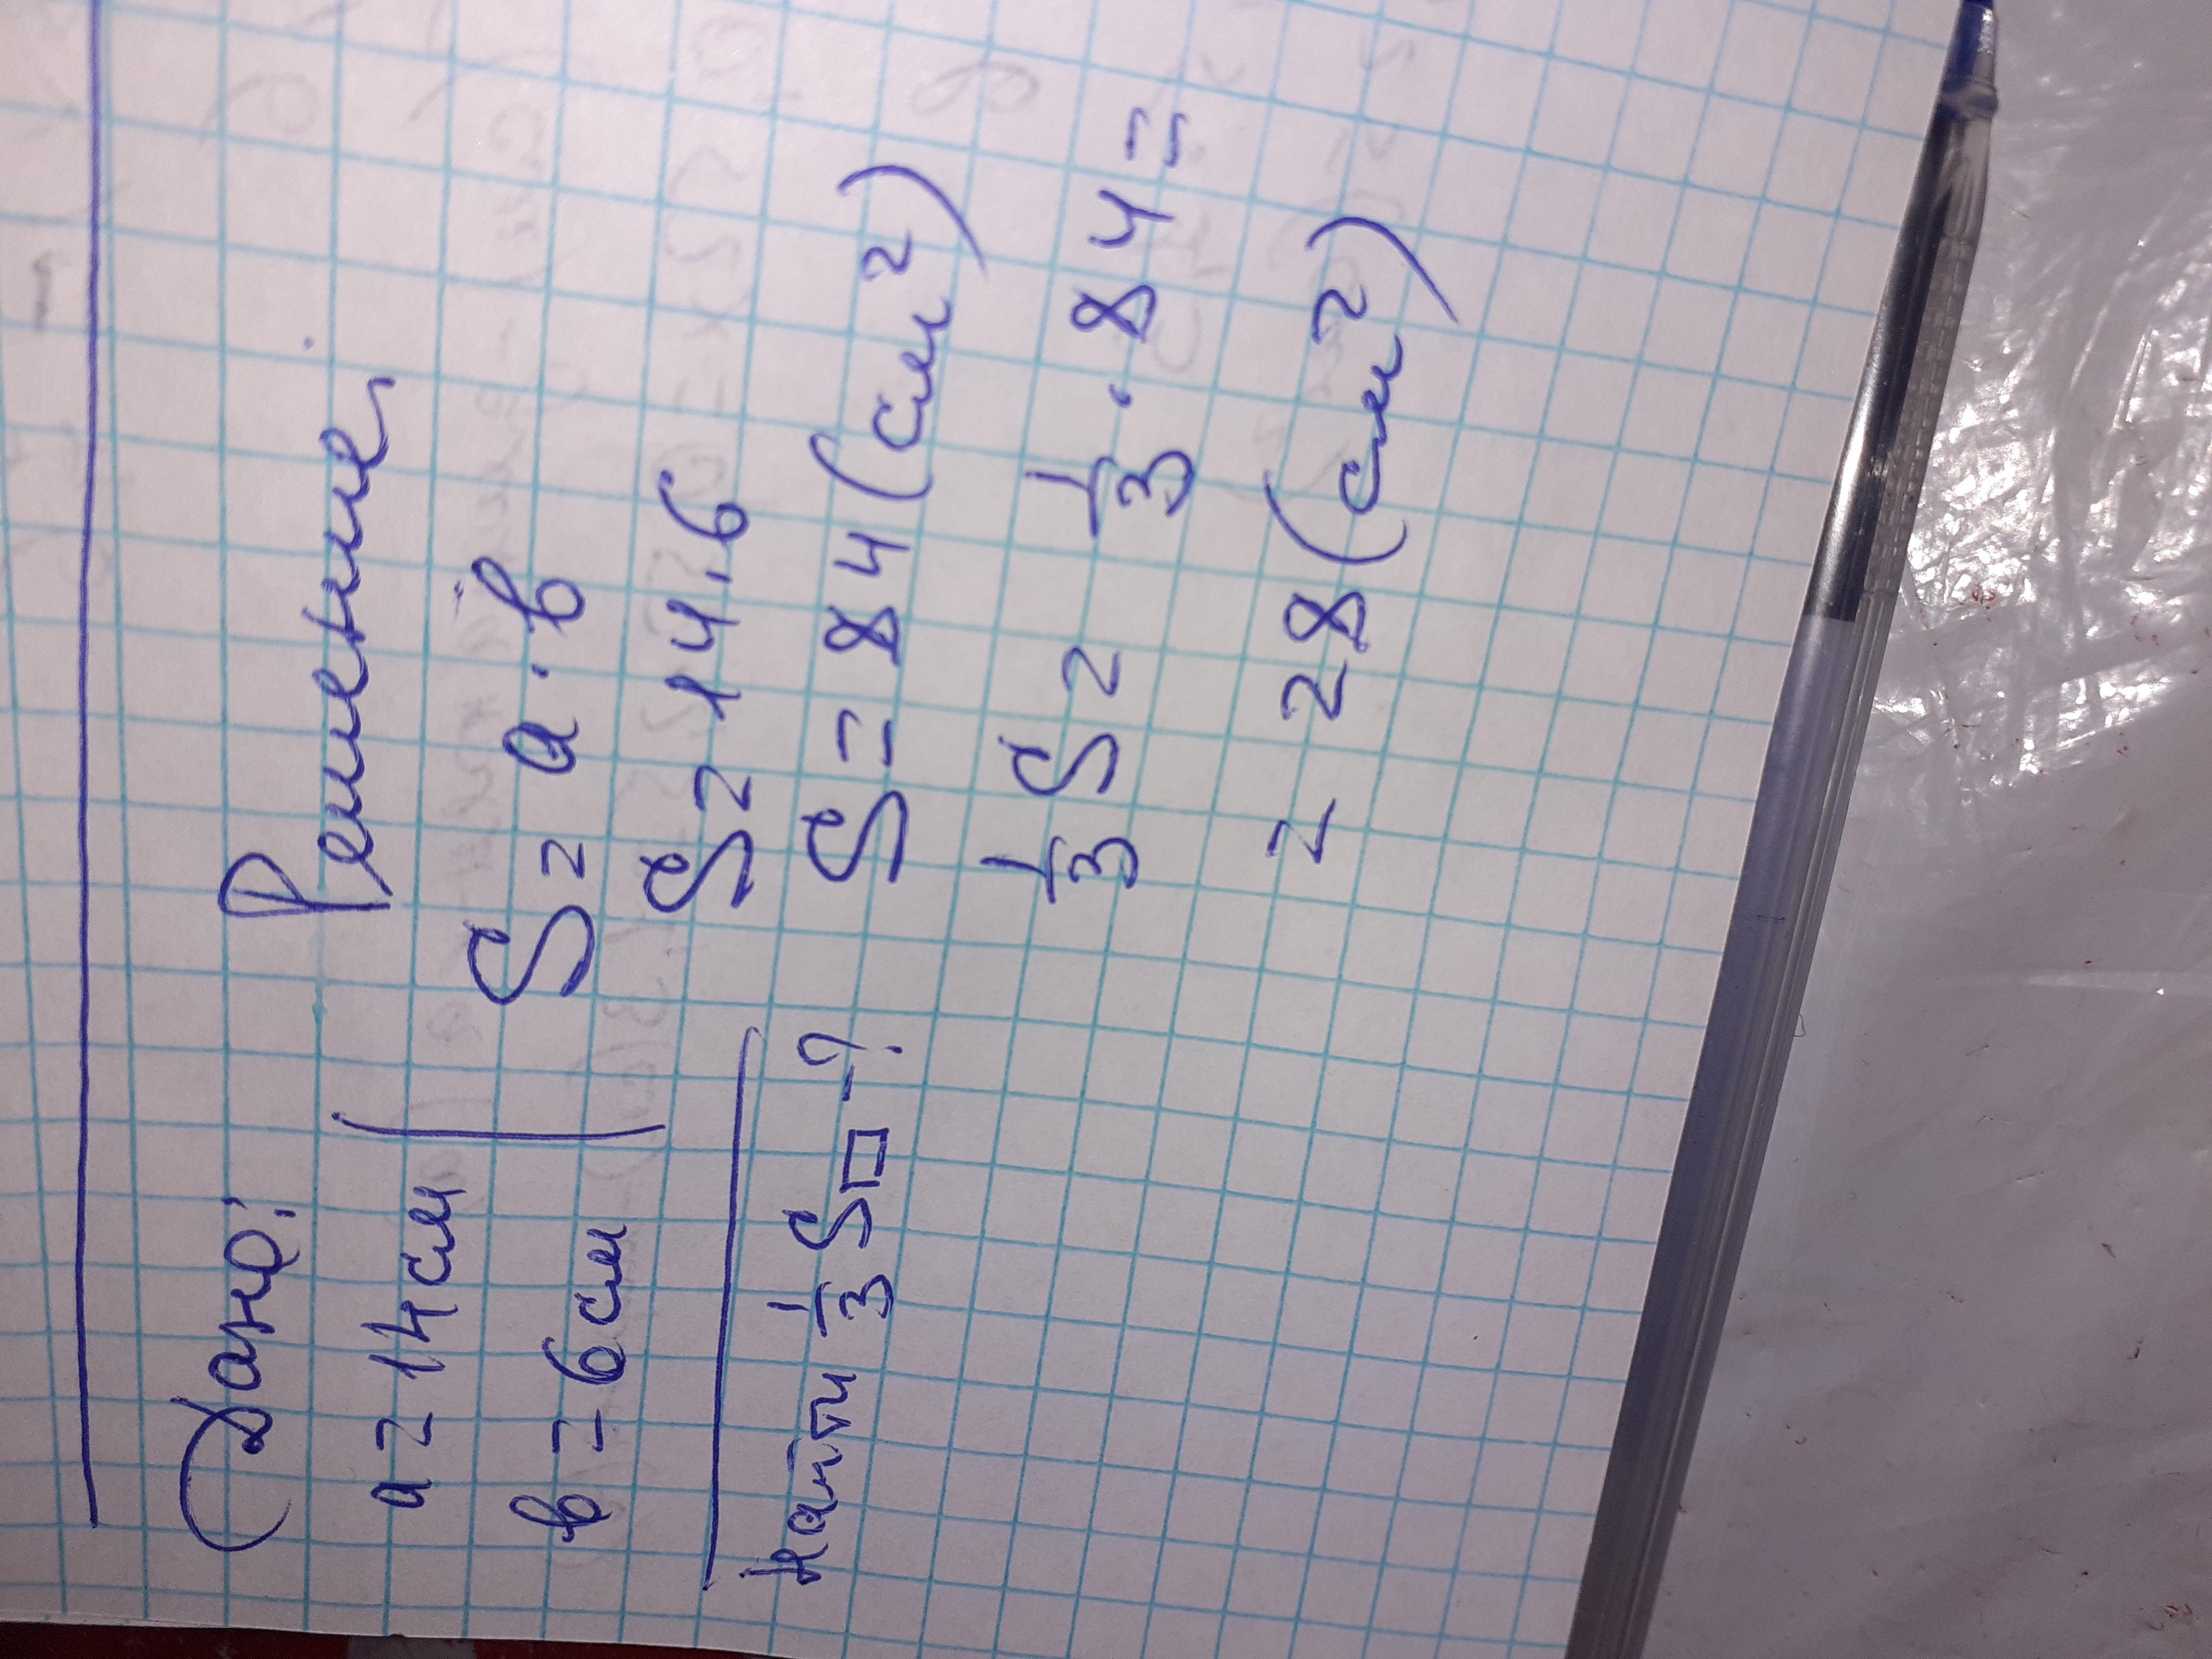 Дано:
a = 14 см
в = 6 см
Найти 1/3 S▭ - ?
Решение
S = a · в
S = 14 · 6
S = 84 (см²)
1/3 S = 1/3 · 84 =
= 28 (см²)